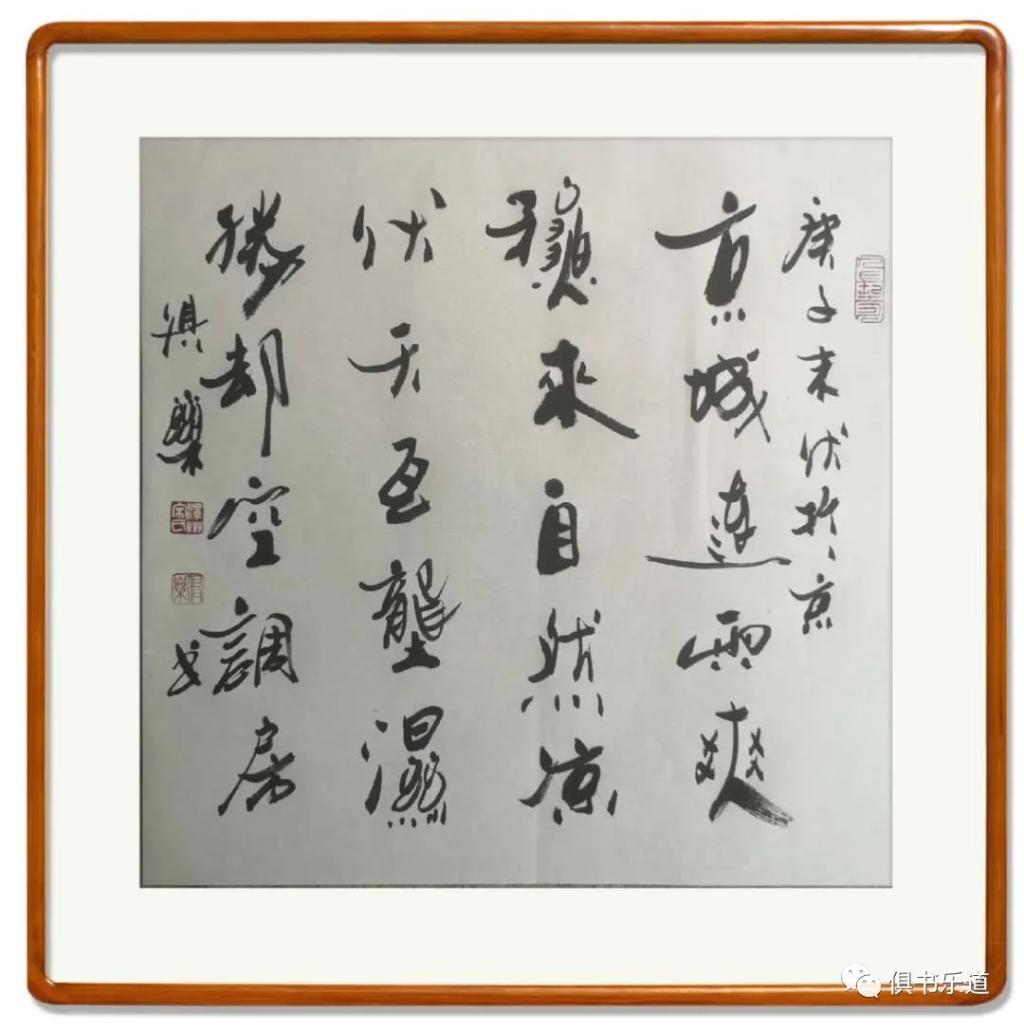 庚子末伏於京
京城連雨爽
穩來自然凉
伏天壟濕
勝却空調房
俱樂书
俱书乐道